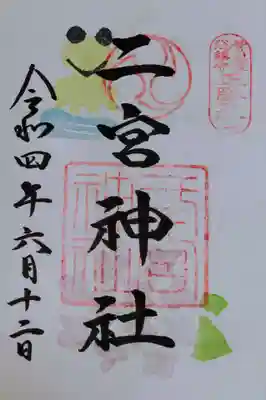 二宮神社
令和四年六月十二日